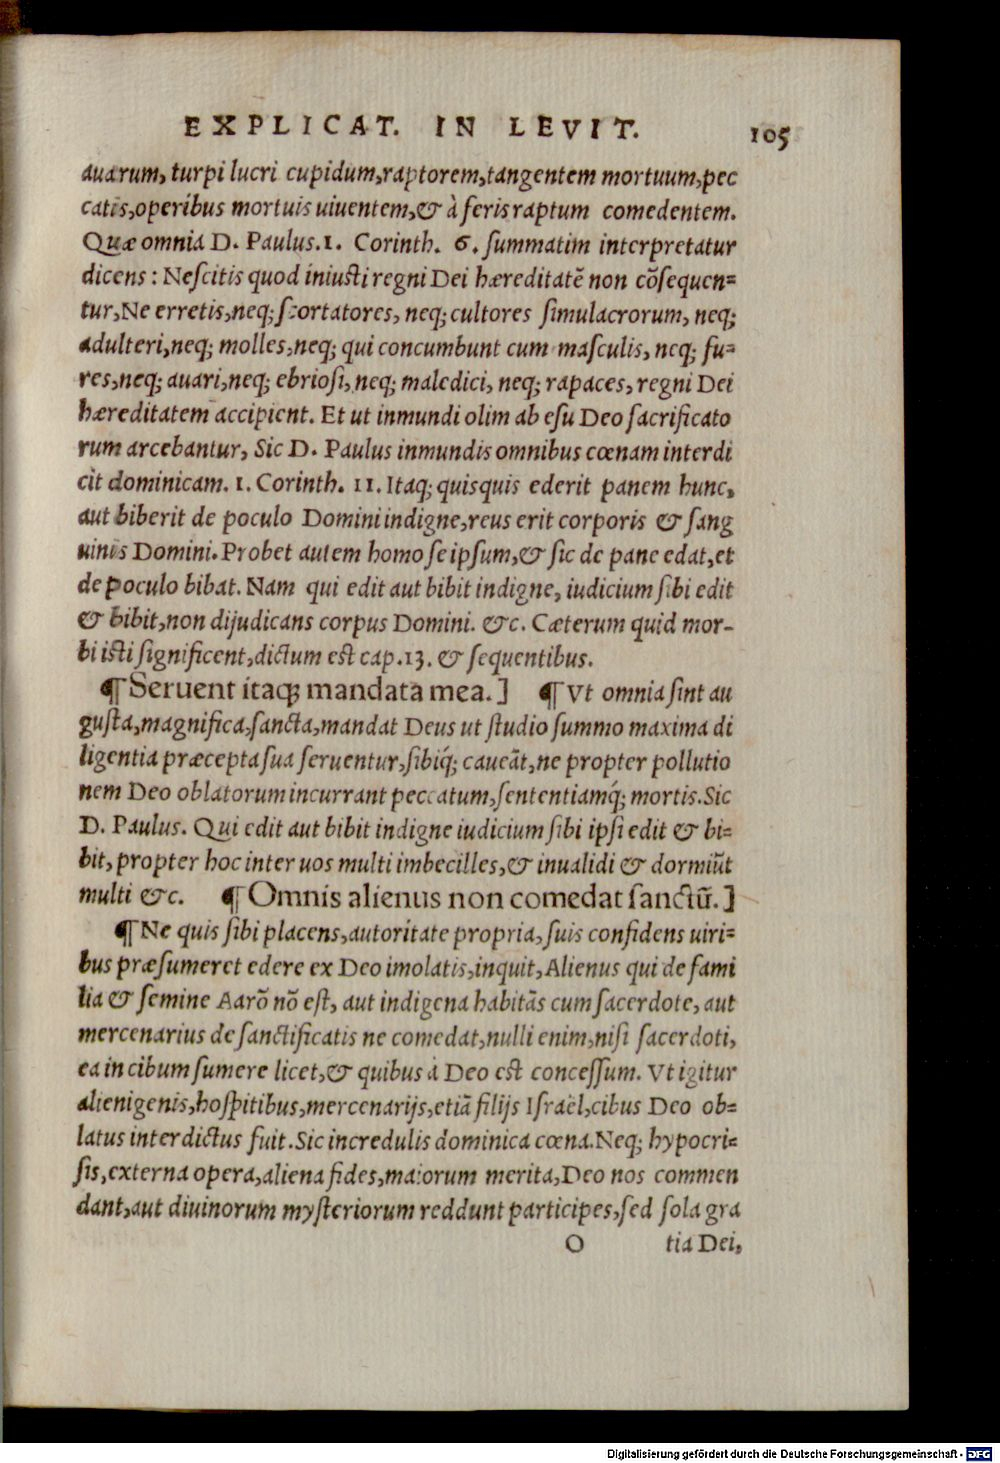 EXPLICAT. IN LEVIT. 105
auarum, turpi lucri cupidum,raptorem,tangentem mortuum,pec
catis,operibus mortuis uiuentem,& à feris raptum comedentem.
Quæ omnia D. Paulus.1. Corinth. 6. ſummatim interpretatur
dicens : Neſcitis quod iniuſti regni Dei hæreditatē non cōſequen⸗
tur,Ne erretis,neq; ſcortatores, neq; cultores ſimulacrorum, neq;
adulteri,neq; molles,neq; qui concumbunt cum maſculis, neq; fu⸗
res,neq; auari,neq; ebrioſi,neq; maledici, neq; rapaces, regni Dei
hæreditatem accipient. Et ut inmundi olim ab eſu Deo ſacrificato
rum arcebantur, Sic D. Paulus inmundis omnibus cœnam interdi
cit dominicam. 1. Corinth. 11. Itaq; quisquis ederit panem hunc,
aut biberit de poculo Domini indigne,reus erit corporis & ſang
uinis Domini. Probet autem homo ſe ipſum,& ſic de pane edat,et
de poculo bibat. Nam qui edit aut bibit indigne, iudicium ſibi edit
& bibit,non dijudicans corpus Domini. &c. Cæterum quid mor-
bi iſti ſignificent,dictum eſt cap.13. & ſequentibus.
¶Seruent itaq; mandata mea.] ¶Vt omnia ſint au
guſta,magnifica,ſancta,mandat Deus ut ſtudio ſummo maxima di
ligentia præcepta ſua ſeruentur,ſibiq́; caueāt,ne propter pollutio
nem Deo oblatorum incurrant peccatum,ſententiamq́; mortis.Sic
D. Paulus. Qui edit aut bibit indigne iudicium ſibi ipſi edit & bi⸗
bit, propter hoc inter uos multi imbecilles,& inualidi & dormiūt
multi &c. ¶Omnis alienus non comedat ſanctū.]
¶Ne quis ſibi placens,autoritate propria, ſuis confidens uiri⸗
bus præſumeret edere ex Deo imolatis,inquit, Alienus qui de fami
lia & ſemine Aarō nō eſt, aut indigena habitās cum ſacerdote, aut
mercenarius de ſanctificatis ne comedat,nulli enim,niſi ſacerdoti,
ea in cibum ſumere licet,& quibus à Deo eſt conceſſum. Vt igitur
alienigenis,hoſpitibus,mercenarijs,etiā filijs Iſraël,cibus Deo ob⸗
latus interdictus fuit. Sic incredulis dominica cœna.Neq; hypocri⸗
ſis,externa opera,aliena fides,maiorum merita,Deo nos commen
dant,aut diuinorum myſteriorum reddunt participes,ſed ſola gra
O tia Dei,
Digitalisierung gefördert durch die Deutsche Forschungsgemeinschaft - DFG